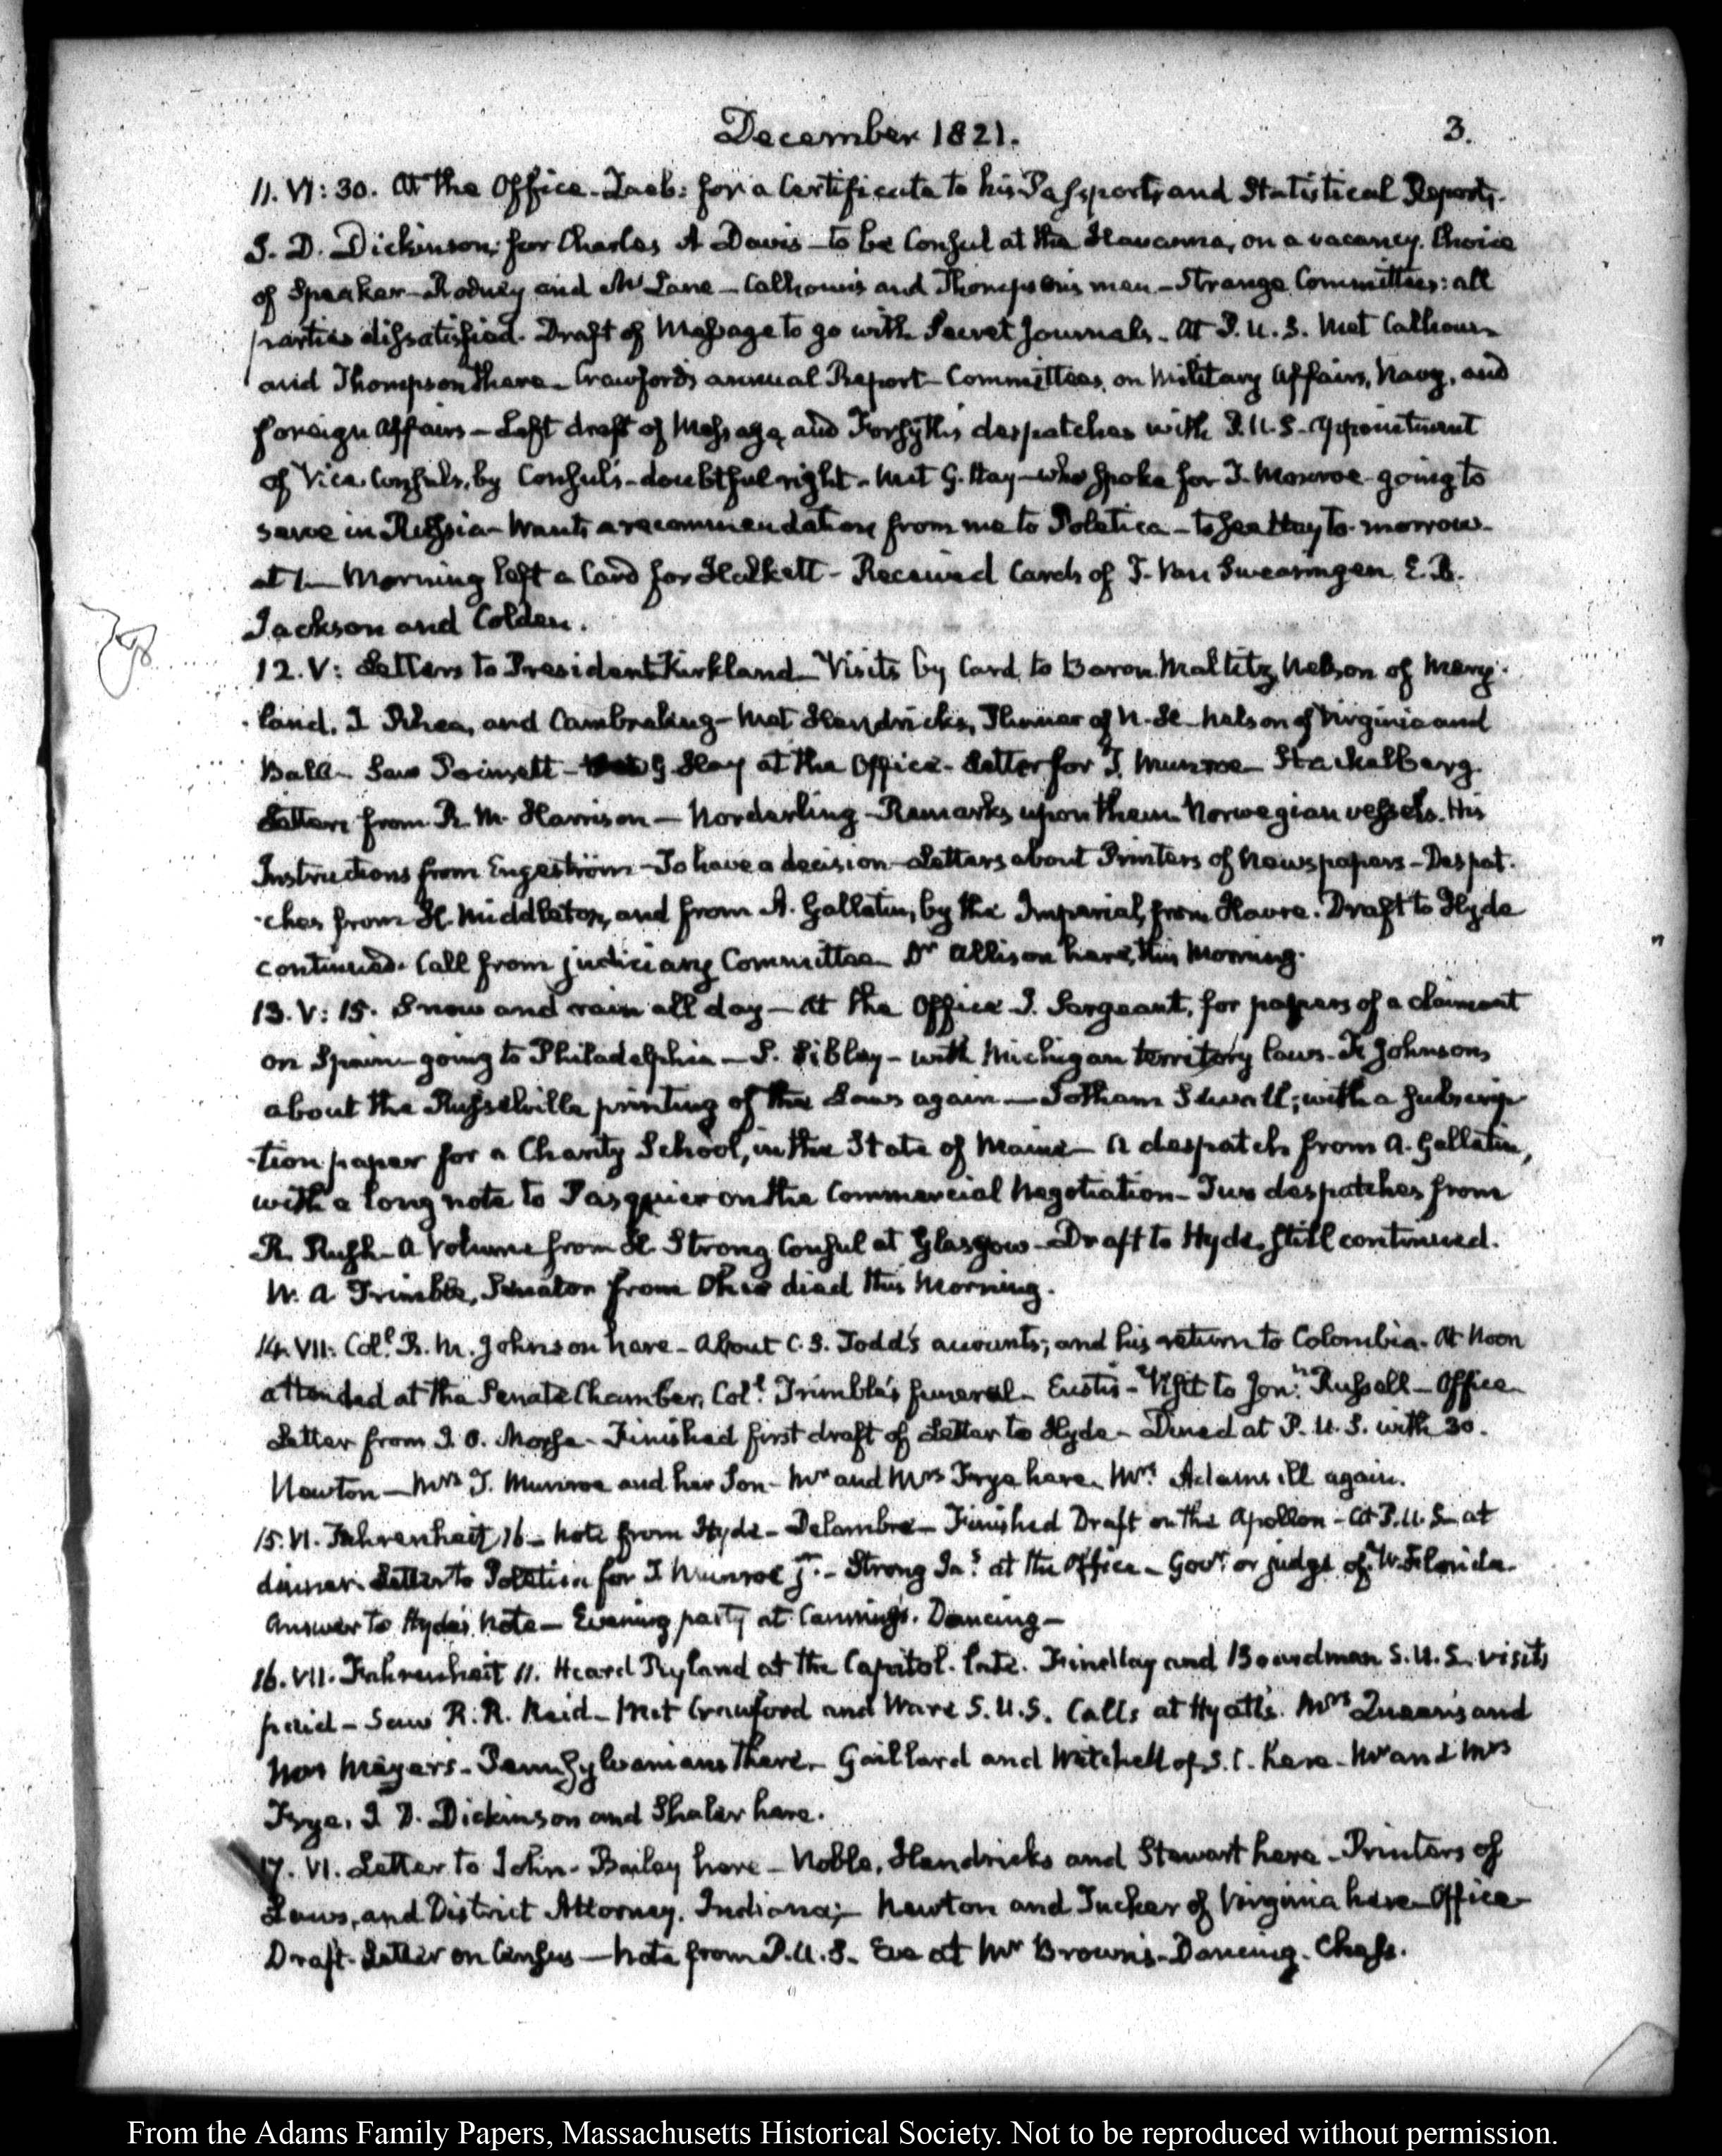 December 1821. 3.
11. VI: 30. At the Office. for a Certificate to his Passport, and Statistical Reports.
J. D. Dickinson, for Charles A Davis to be Consul at the Havanna, on a vacancy. Choice
of Speaker Rodney and McLane Calhoun's and Thompson's men Strange Committees: all
parties dissatisfied. Draft of Message to go with Secret Journals. At P.U.S. Met Calhoun
and Thompson there. Crawford's annual Report Committees, on Military Affairs, Navy, and
foreign Affairs Left draft of Message, and Forsyth's despatches with P.U.S. Appointment
of Vice Consuls, by Consuls doubtful right. Met G. Hay who spoke for J. Monroe going to
serve in Russia Wants a recommendation from me to Poletica to see Hay to-morrow
at 1 Morning left a Card for Halkett Received Cards of T. Van Swearingen, E. B.
Jackson and Colden.
12. V: Letters to President Kirkland Visits by Card to Baron Maltitz, Nelson of Mary-
land, J Rhea, and Cambreling Met Hendricks, of N. H. Nelson of Virginia and
Ball Saw Poinsett G Hay at the Office. Letter for J. Munroe Stackelberg
Letters from R. M. Harrison Norderling Remarks upon them Norwegian vessels. His
Instructions from Engeström To have a decision Letters about Printers of Newspapers Despat-
ches from H. Middleton, and from A. Gallatin, by the Imperial, from Havre. Draft to Hyde
continued. Call from judiciary Committee Dr Allison here, this Morning.
13. V: 15. Snow and rain all day At the Office J. Sergeant, for papers of a claimant
on Spain going to Philadelphia S. Sibley with Michigan territory laws. Johnson,
about the Russelville printing of the Laws again Jotham Sewall; with a subscrip-
tion paper for a Charity School, in the State of Maine A despatch from A. Gallatin,
with a long note to Pasquier on the Commercial Negotiation Two despatches from
R. Rush A Volume from H. Strong Consul at Glasgow Draft to Hyde, still continued.
W. A Trimble, Senator from Ohio died this Morning.
14. VII: Coll. R. M. Johnson here About C. S. Todd's accounts; and his return to Colombia. At Noon
attended at the Senate Chamber, Coll. Trimble's funeral. Eustis Visit to Jonn. Russell Office
Letter from J. O. Morse Finished first draft of Letter to Hyde Dined at P.U.S. with 30.
Newton Mrs J. Munroe and her Son Mr and Mrs Frye here. Mrs Adams ill again.
15. VI. Fahrenheit 16 Note from Hyde Delambre Finished Draft on the Apollon At P.U.S at
dinner. Letter to Poletica for J Munroe jr. Strong Jas. at the Office Govr. or judge of W. Florida.
Answer to Hyde's Note Evening party at Canning's. Dancing
16. VII. Fahrenheit 11. Heard Ryland at the Capitol. late. Findlay and Boardman S.U.S. visits
paid Saw R. R. Reid Met Crawford and Ware S.U.S. Calls at Hyatt's. Mrs Queen's and
Mrs Meyers Pennsylvanians there. Gaillard and Mitchell of S. C. here Mr and Mrs
Frye, J. D. Dickinson and Shaler here.
17. VI. Letter to John. Bailey here Noble, Hendricks and Stewart here Printers of
Laws, and District Attorney. Indiana; Newton and Tucker of Virginia here Office
Draft. Letter on Census note from P.U.S. Eve at Mr Brown's Dancing. Chess.
From the Adams Family Papers, Massachusetts Historical Society. Not to be reproduced without permission.